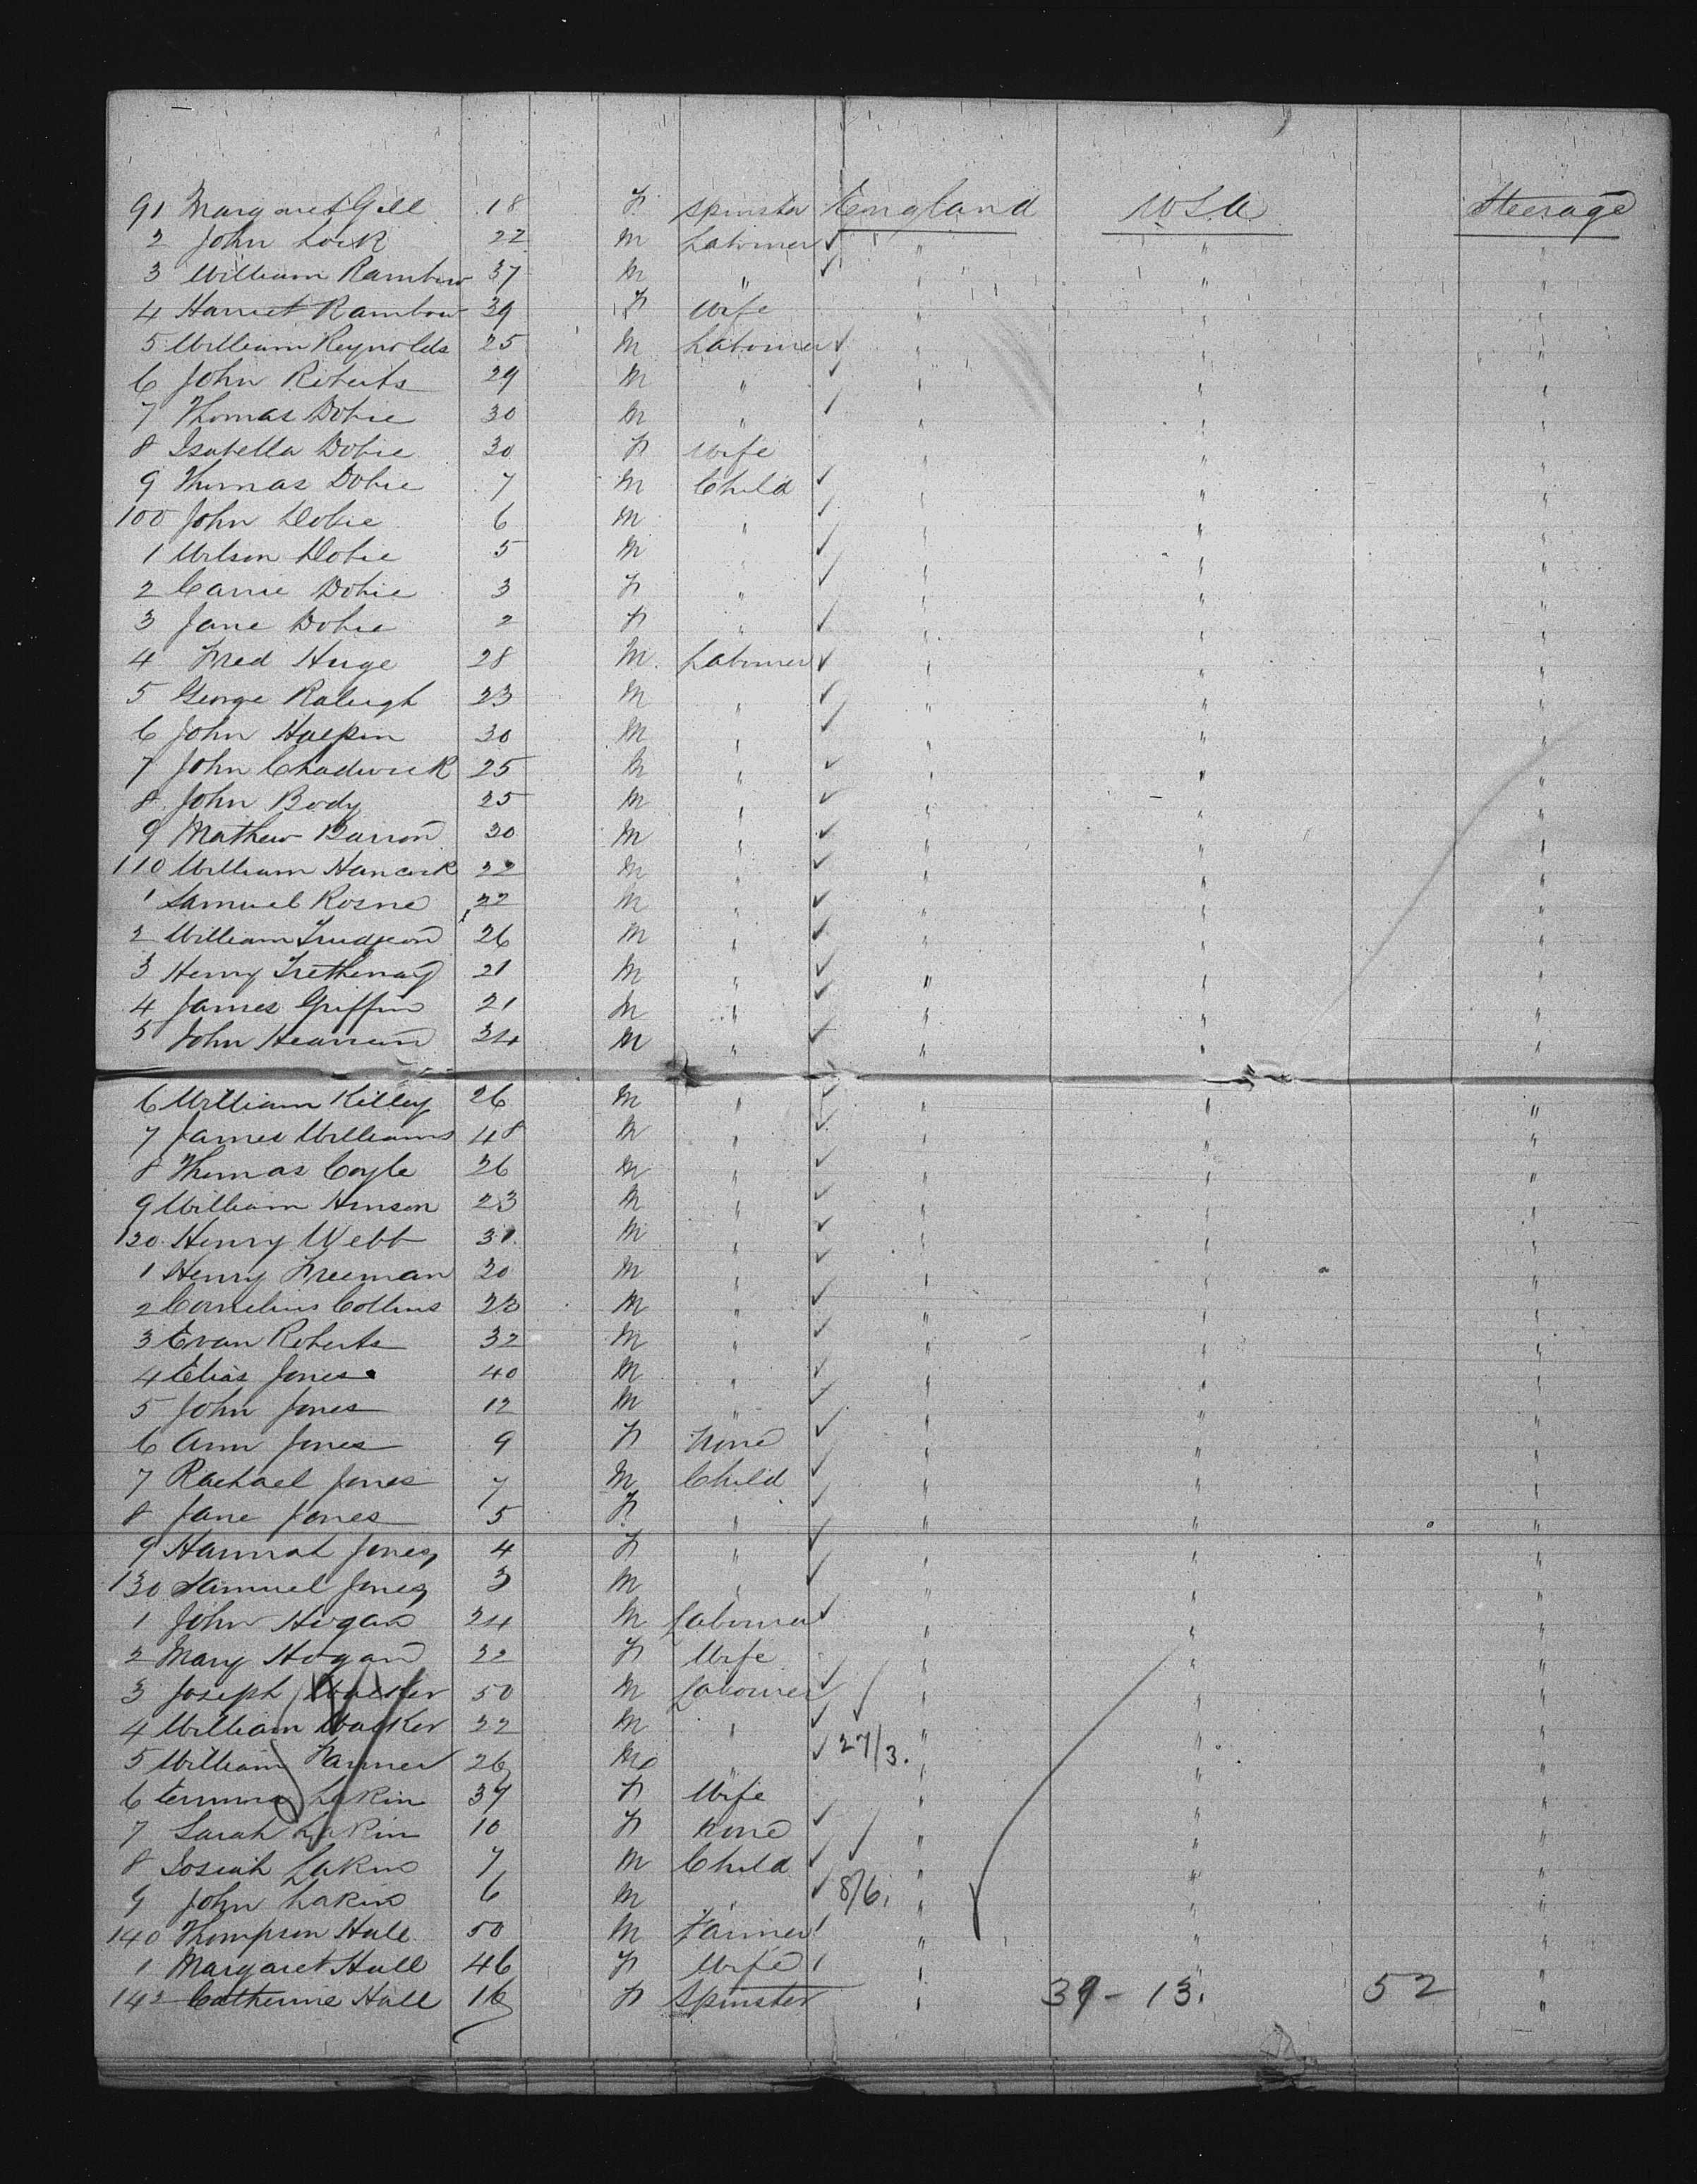 91 Margaret Gill 18 F Spinster England USA Steerage
2 John Lock 22 M Labourer " " "
3 William Rambow 37 M " " " "
4 Harriet Rambow 39 F Wife " " "
5 William Reynolds 25 M Labourer " " "
6 John Roberts 29 M " " " "
7 Thomas Dobie 30 M " " " "
8 Isabella Dobie 30 F Wife " " "
9 Thomas Dobie 7 M Child " " "
100 John Dobie 6 M " " " "
1 Wilson Dobie 5 M " " " "
2 Carrie Dobie 3 F " " " "
3 Jane Dobie 2 F " " " "
4 Fred Huge 28 M Labourer " " "
5 George Raleigh 23 M " " " "
6 John Halpin 30 M " " " "
7 John Chadwick 25 M " " " "
8 John Body 25 M " " " "
9 Mathew Barron 30 M " " " "
110 William Hancock 22 M " " " "
1 Samuel Rosne 22 M " " " "
2 William Trudgeon 26 M " " " "
3 Henry Tretheway 21 M " " " "
4 James Griffin 21 M " " " "
5 John 34 M " " " "
6 William Killey 26 M " " " "
7 James Williams 48 M " " " "
8 Thomas Coyle 26 M " " " "
9 William Hinson 23 M " " " "
120 Henry Webb 31 M " " " "
1 Henry Freeman 20 M " " " "
2 Cornelius Collins M " " " "
3 Evan Roberts 32 M " " " "
4 Elias Jones 40 M " " " "
5 John Jones 12 M " " " "
6 Ann Jones 9 F None " " "
7 Rachael Jones 7 M Child " " "
8 Jane Jones 5 F " " " "
9 Hannah Jones 4 F " " " "
130 Samuel Jones 3 M " " " "
1 John Hogan 24 M Labourer " " "
2 Mary Hogan 22 F Wife " " "
3 Joseph Walker 50 M Labourer " " "
4 William Walker 22 M " " " "
5 William Farmer 26 M " 27/3. " " "
6 Emma Lakin 37 F Wife " " "
7 Sarah Lakin 10 F None " " "
8 Josiah Lakin 7 M Child " " "
9 John Lakin 6 M " 8/6. " " "
140 Thompson Hall 50 M Farmer " " "
1 Margaret Hall 46 F Wife " " "
142 Catherine Hall 16 F Spinster " 39 - 13. 52 "